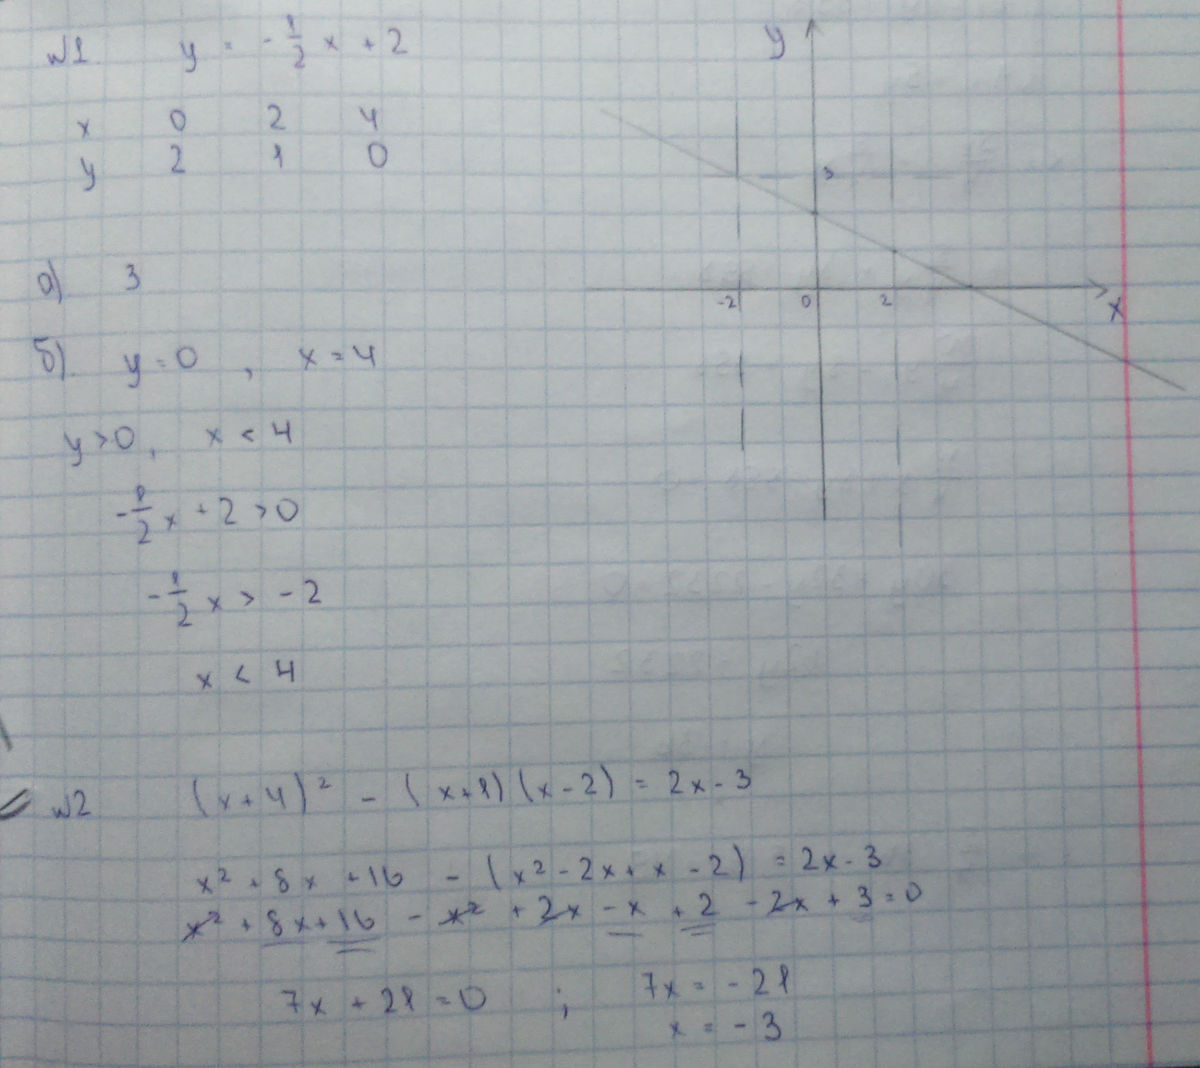 №1 y = -1/2 x + 2
x 0 2 4
y 2 1 0
а) 3
б) y = 0 , x = 4
y > 0 , x < 4
-1/2 x + 2 > 0
-1/2 x > -2
x < 4
y
3
-2 0 2
x
№2 (x+4)² - (x+1)(x-2) = 2x-3
x² + 8x + 16 - (x² - 2x + x - 2) = 2x - 3
x² + 8x + 16 - x² + 2x - x + 2 - 2x + 3 = 0
7x + 21 = 0 ; 7x = -21
x = -3